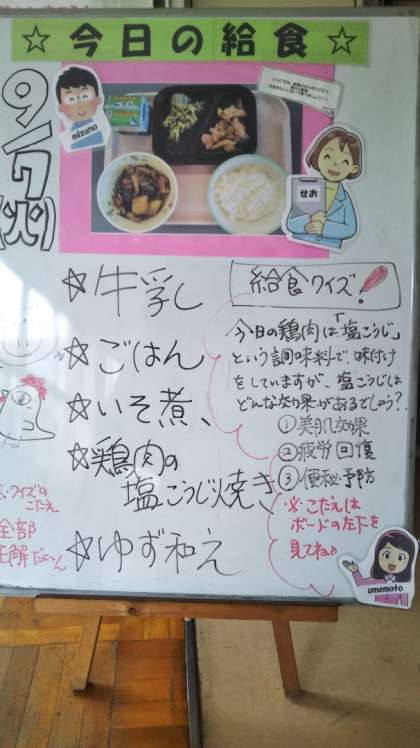 ☆今日の給食☆
9/7(火)
mizuno
せお
☆牛乳
☆ごはん
☆いそ煮、
☆鶏肉の
塩こうじ焼き
☆ゆず和え
給食クイズ!
今日の鶏肉は「塩こうじ」
という調味料で、味付け
をしていますが、塩こうじは
どんな効果があるでしょう?
①美肌効果
②疲労回復
③便秘予防
※こたえは
ボードの左下を
見てね
クイズの
こたえ
全部
正解だよーん
umemoto